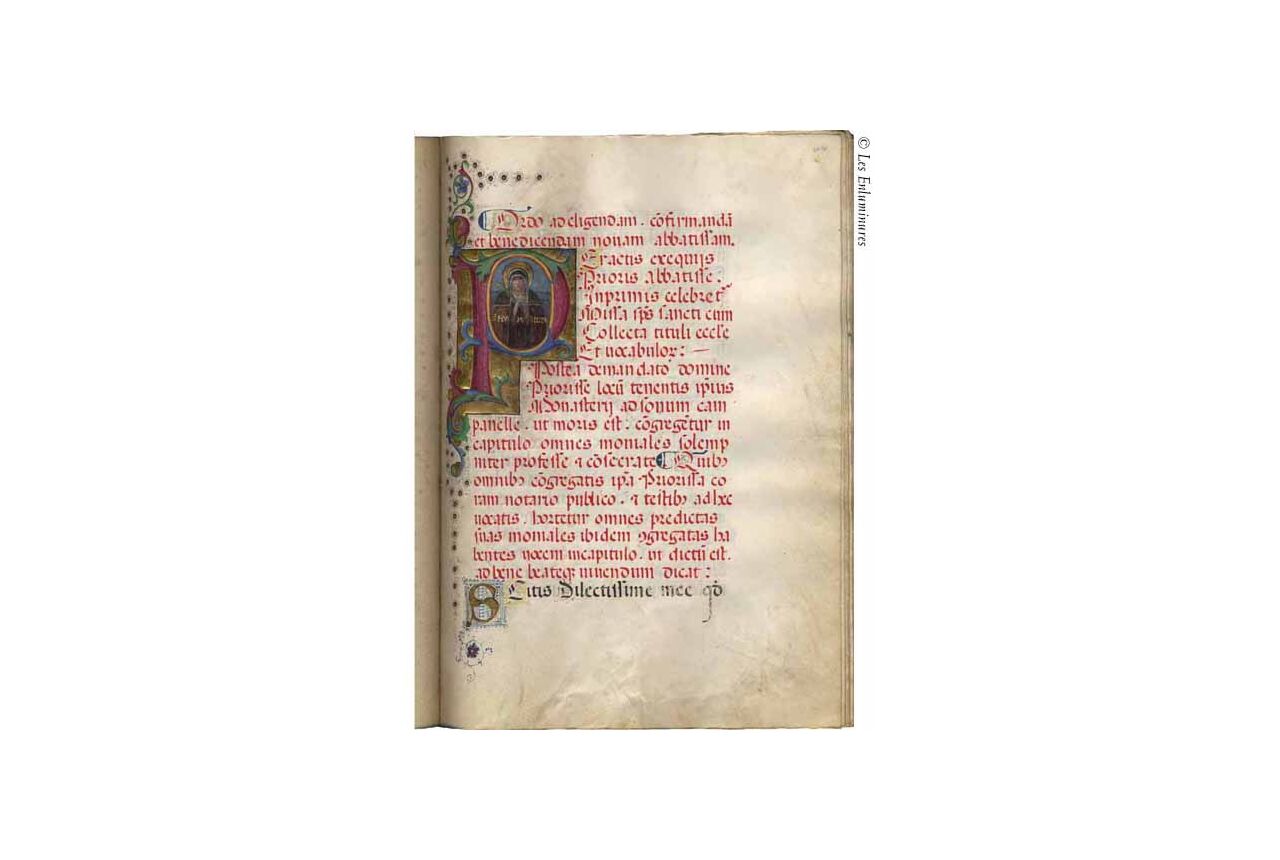 Ordo ad eligendam. cõfirmandã
et benedicendam novam abbatissam.
Peractis exequiis
Prioris abbatisse.
Inprimis celebret᷑
Missa sp̃s sancti cum
Collecta tituli eccl̃e
Et vocabulor: —
Postea de mandato domine
Priorisse locũ tenentis ip̃ius
Monasterij ad sonum cam
panelle. ut moris est. cõgregẽtur in
capitulo omnes moniales solemp
niter professe & cõsecrate Quibꝫ
omnibꝫ cõgregatis ip̃a Priorissa co
ram notario publico. & testibꝫ ad hec
vocatis. hortetur omnes predictas
suas moniales ibidem ꝯgregatas ha
bentes vocem in capitulo. ut dictũ est.
ad bene beateqꝫ vivendum dicat:
SCitis Dilectissime mee qd̃
© Les Enluminures